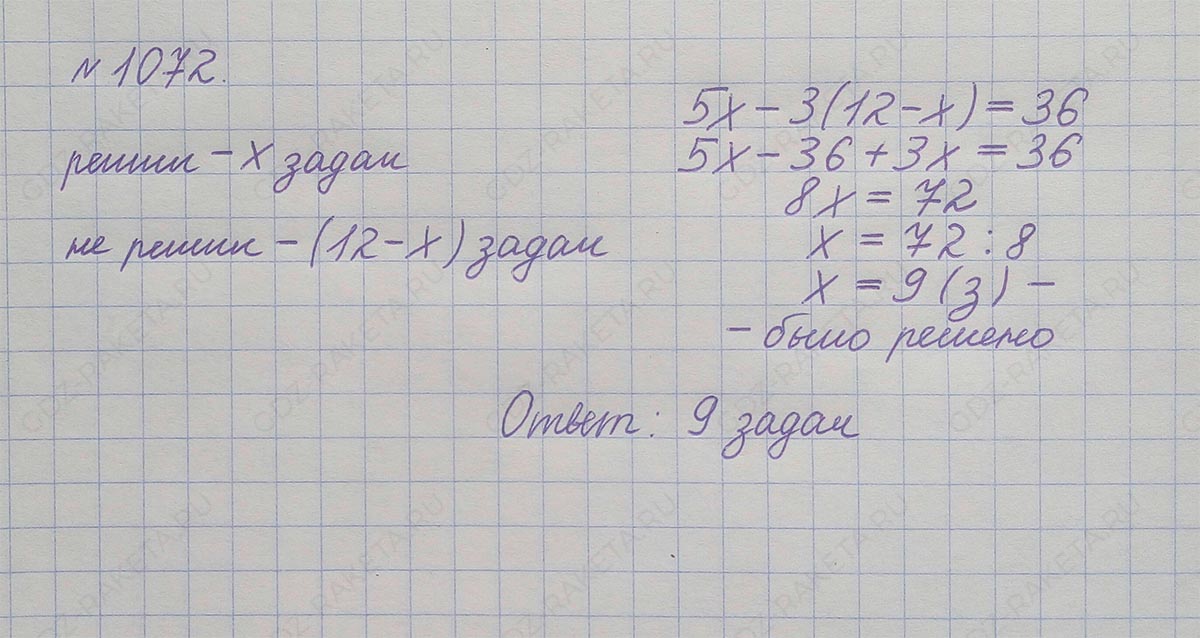 № 1072.
решил – x задач
не решил – (12 – x) задач
5x – 3(12 – x) = 36
5x – 36 + 3x = 36
8x = 72
x = 72 : 8
x = 9 (з) –
– было решено
Ответ: 9 задач
GDZ-RAKETA.RU